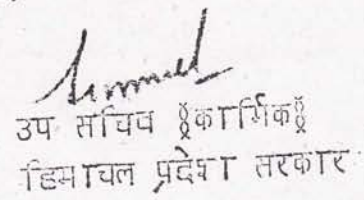 उप सचिव ॄकार्मिकॄ
हिमाचल प्रदेश सरकार